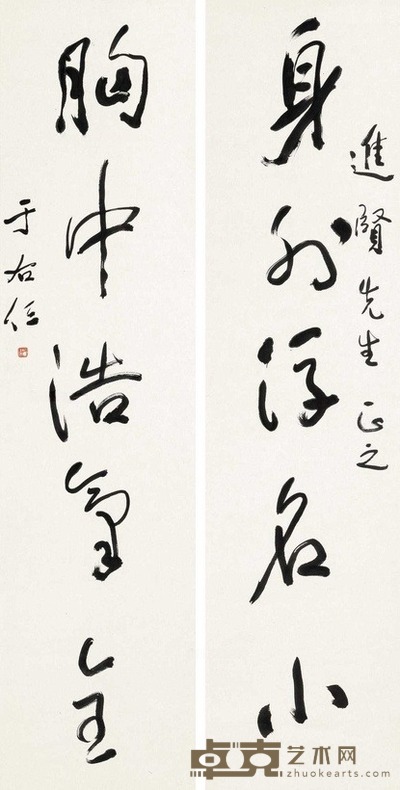 進賢先生正之
身外浮名小
胸中浩氣全
于右任
卓克艺术网
zhuokearts.com